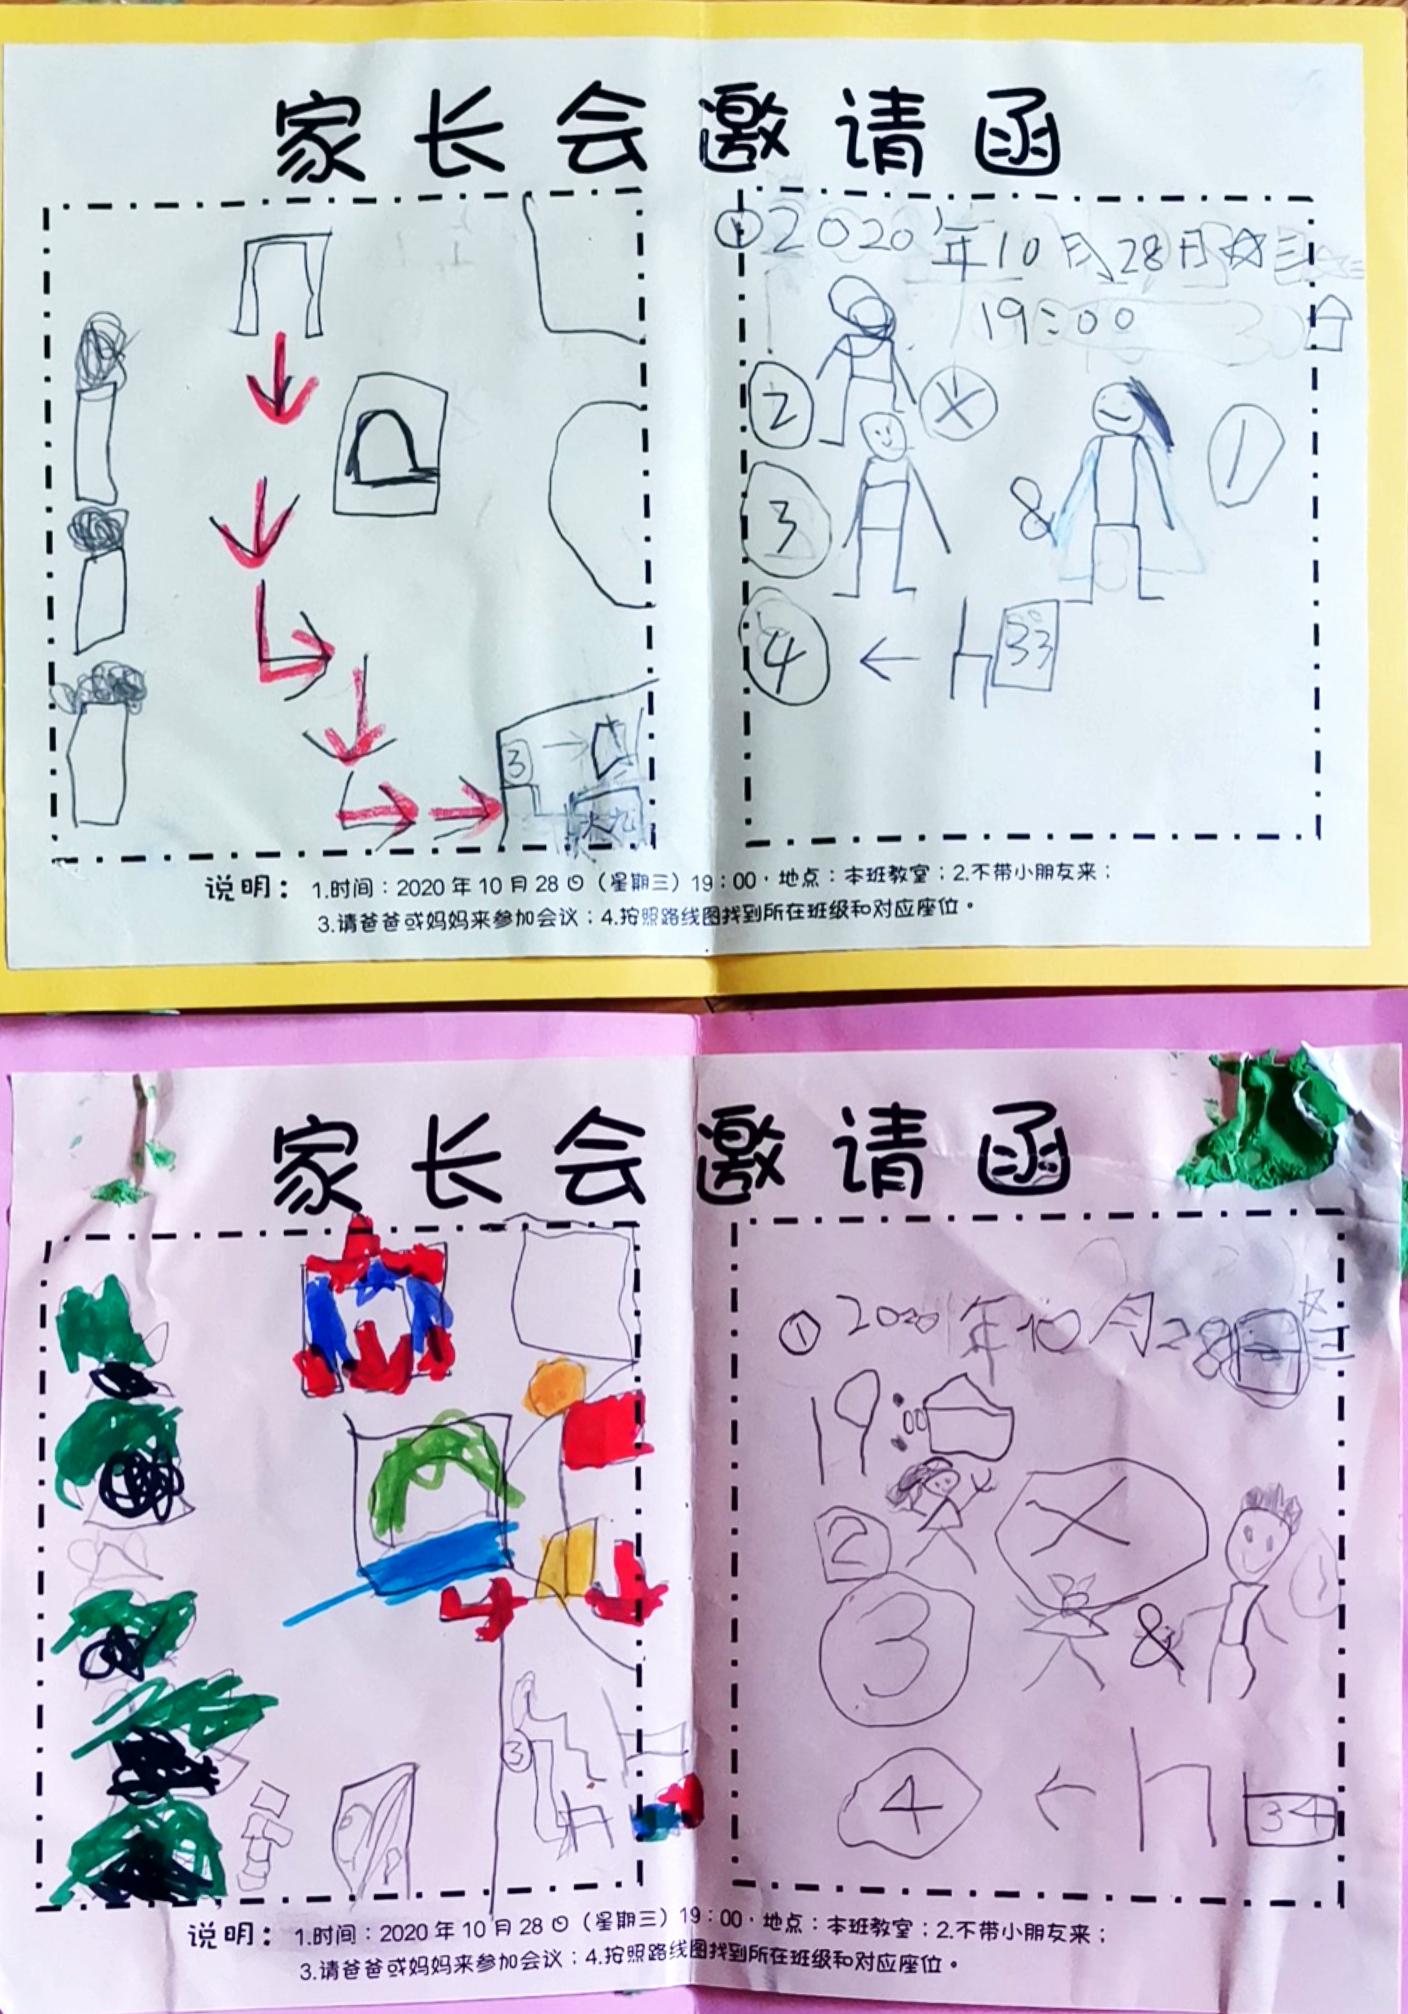 家长会邀请函
3
大九
① 2020年10月28日☆三
19:00
② X
1
③ &
④ ← 33
说明：1.时间：2020年10月28日（星期三）19：00，地点：本班教室；2.不带小朋友来；
3.请爸爸或妈妈来参加会议；4.按照路线图找到所在班级和对应座位。
家长会邀请函
③
① 2020年10月28日☆三
19:00
2 X
3 & 1
4 ← 34
说明：1.时间：2020年10月28日（星期三）19：00，地点：本班教室；2.不带小朋友来；
3.请爸爸或妈妈来参加会议；4.按照路线图找到所在班级和对应座位。